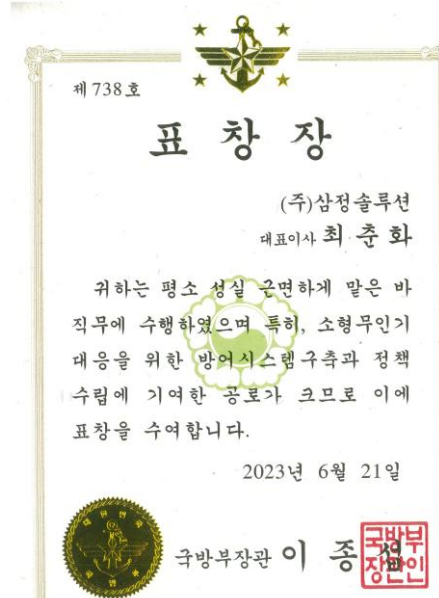 제 738 호
표 창 장
(주)삼정솔루션
대표이사 최 춘 화
귀하는 평소 성실 근면하게 맡은 바
직무에 수행하였으며 특히, 소형무인기
대응을 위한 방어시스템구축과 정책
수립에 기여한 공로가 크므로 이에
표창을 수여합니다.
2023년 6월 21일
국방부장관 이 종 섭
국방부
장관인
대한민국
국방부